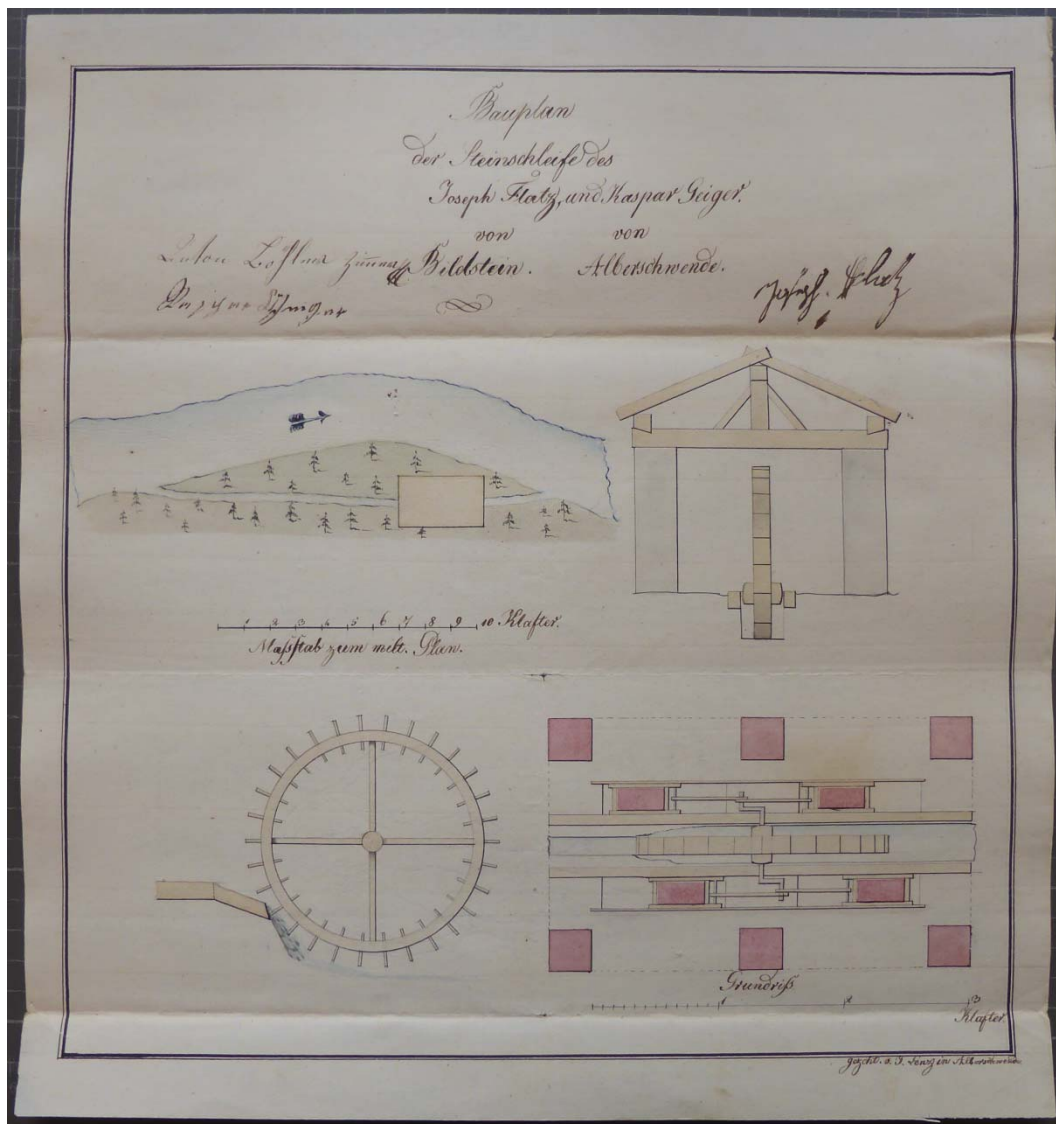 Bauplan
der Steinschleife des
Joseph Flatz, und Kaspar Geiger.
von von
Bildstein. Alberschwende.
Anton
Joseph. Flatz
1 2 3 4 5 6 7 8 9 10 Klafter.
Maßstab zum Plan.
Grundriß
1 2 3
Klafter.
gezcht. v. J. in Alberschwende